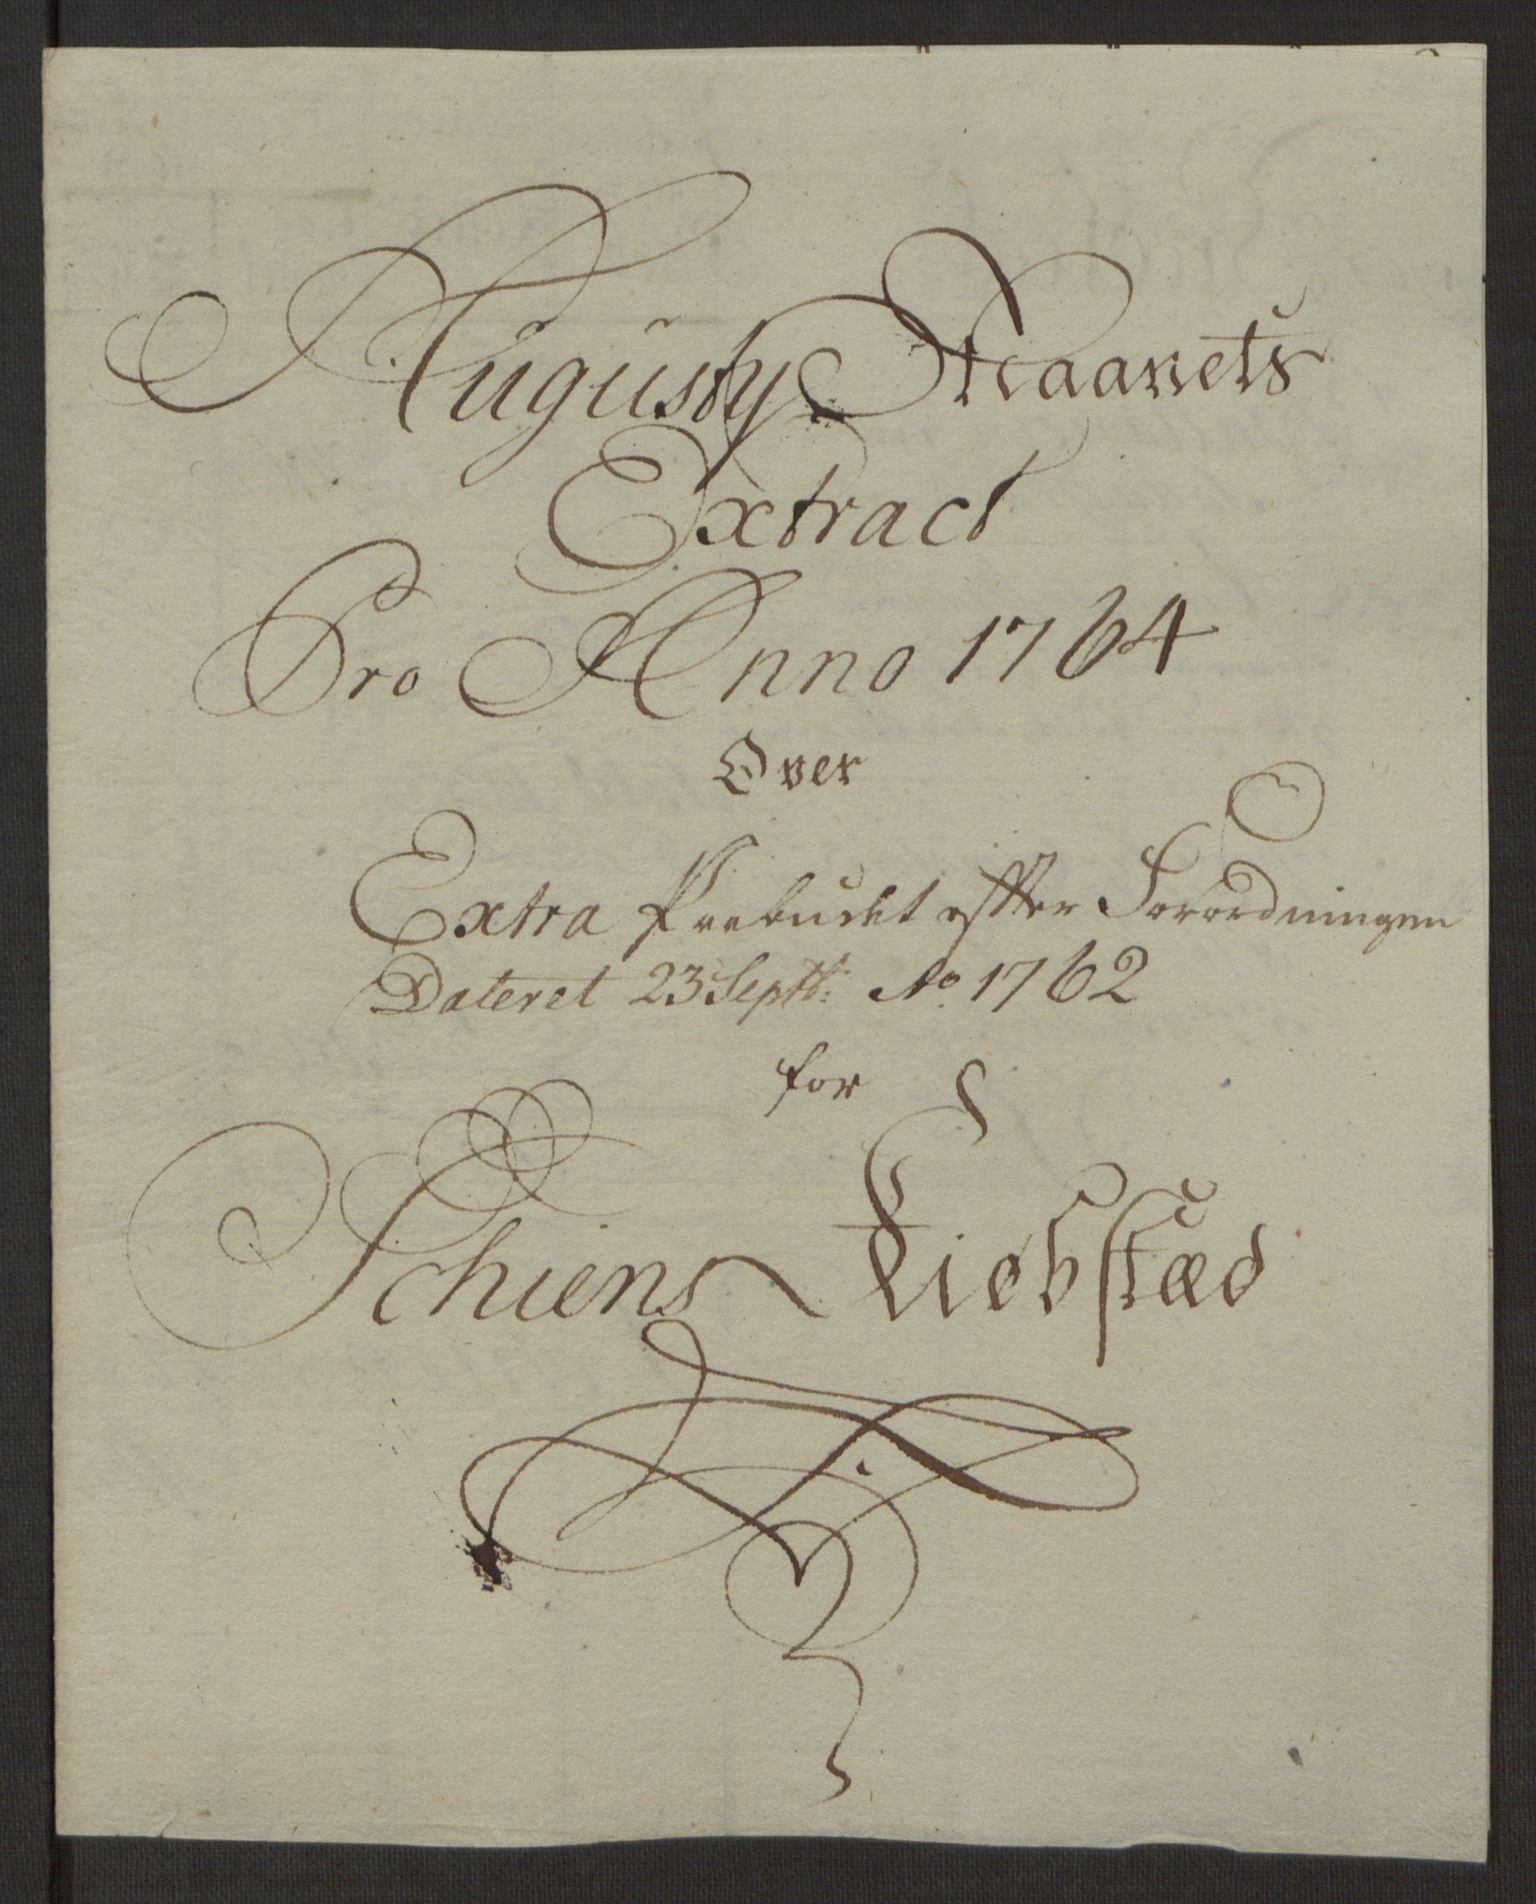 Augusty Maanets
Extract
Pro Anno 1764
Over
Extra Paabudet efter Forordningen
Dateret 23 Septb: Ao 1762
for
Schiens Kiøbstæd